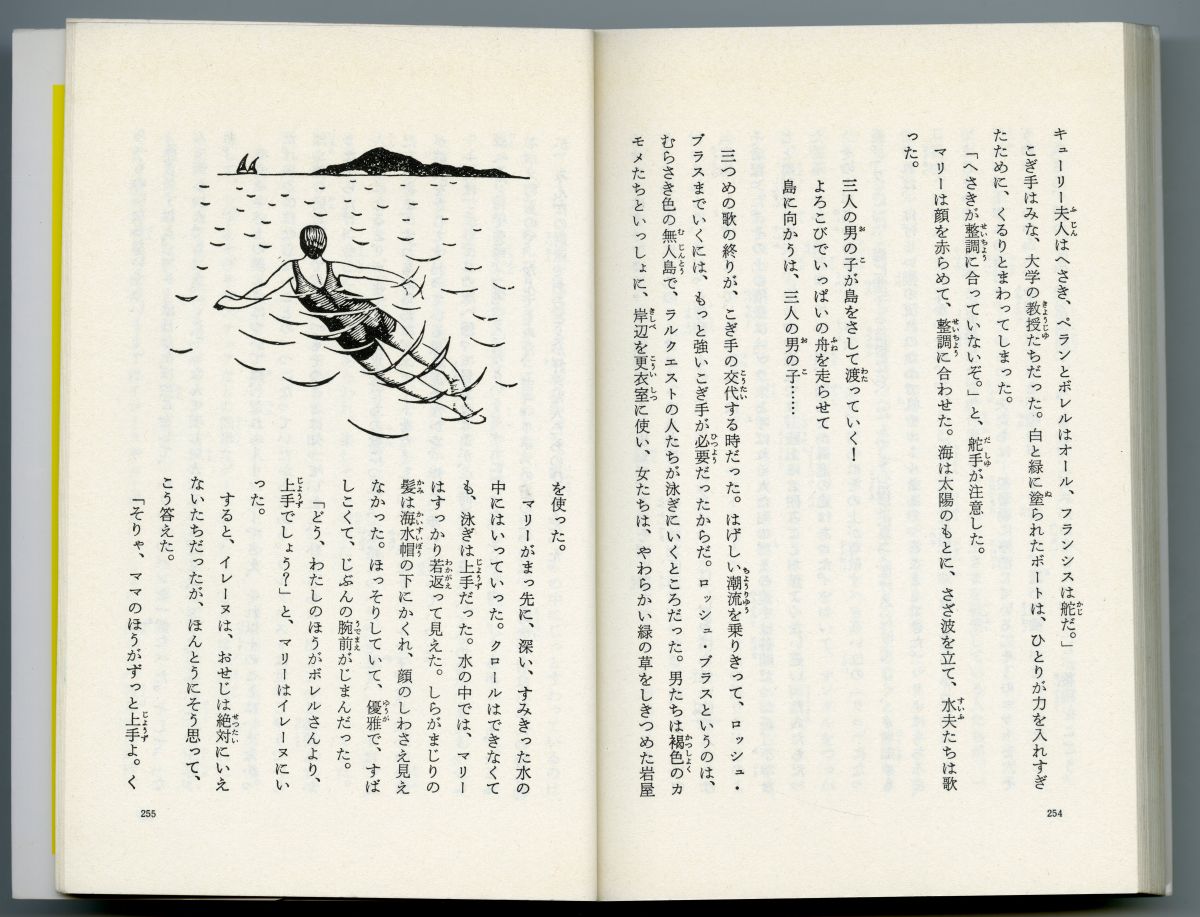 キューリー夫人はへさき、ペランとボレルはオール、フランシスは舵だ。」
こぎ手はみな、大学の教授たちだった。白と緑に塗られたボートは、ひとりが力を入れすぎ
たために、くるりとまわってしまった。
「へさきが整調に合っていないぞ。」と、舵手が注意した。
マリーは顔を赤らめて、整調に合わせた。海は太陽のもとに、さざ波を立て、水夫たちは歌
った。
三人の男の子が島をさして渡っていく!
よろこびでいっぱいの舟を走らせて
島に向かうは、三人の男の子……
三つめの歌の終りが、こぎ手の交代する時だった。はげしい潮流を乗りきって、ロッシュ・
ブラスまでいくには、もっと強いこぎ手が必要だったからだ。ロッシュ・ブラスというのは、
むらさき色の無人島で、ラルクエストの人たちが泳ぎにいくところだった。男たちは褐色のカ
モメたちといっしょに、岸辺を更衣室に使い、女たちは、やわらかい緑の草をしきつめた岩屋
254
を使った。
マリーがまっ先に、深い、すみきった水の
中にはいっていった。クロールはできなくて
も、泳ぎは上手だった。水の中では、マリー
はすっかり若返って見えた。しらがまじりの
髪は海水帽の下にかくれ、顔のしわさえ見え
なかった。ほっそりしていて、優雅で、すば
しこくて、じぶんの腕前がじまんだった。
「どう、わたしのほうがボレルさんより、
上手でしょう?」と、マリーはイレーヌにい
った。
すると、イレーヌは、おせじは絶対にいえ
ないたちだったが、ほんとうにそう思って、
こう答えた。
「そりゃ、ママのほうがずっと上手よ。く
255